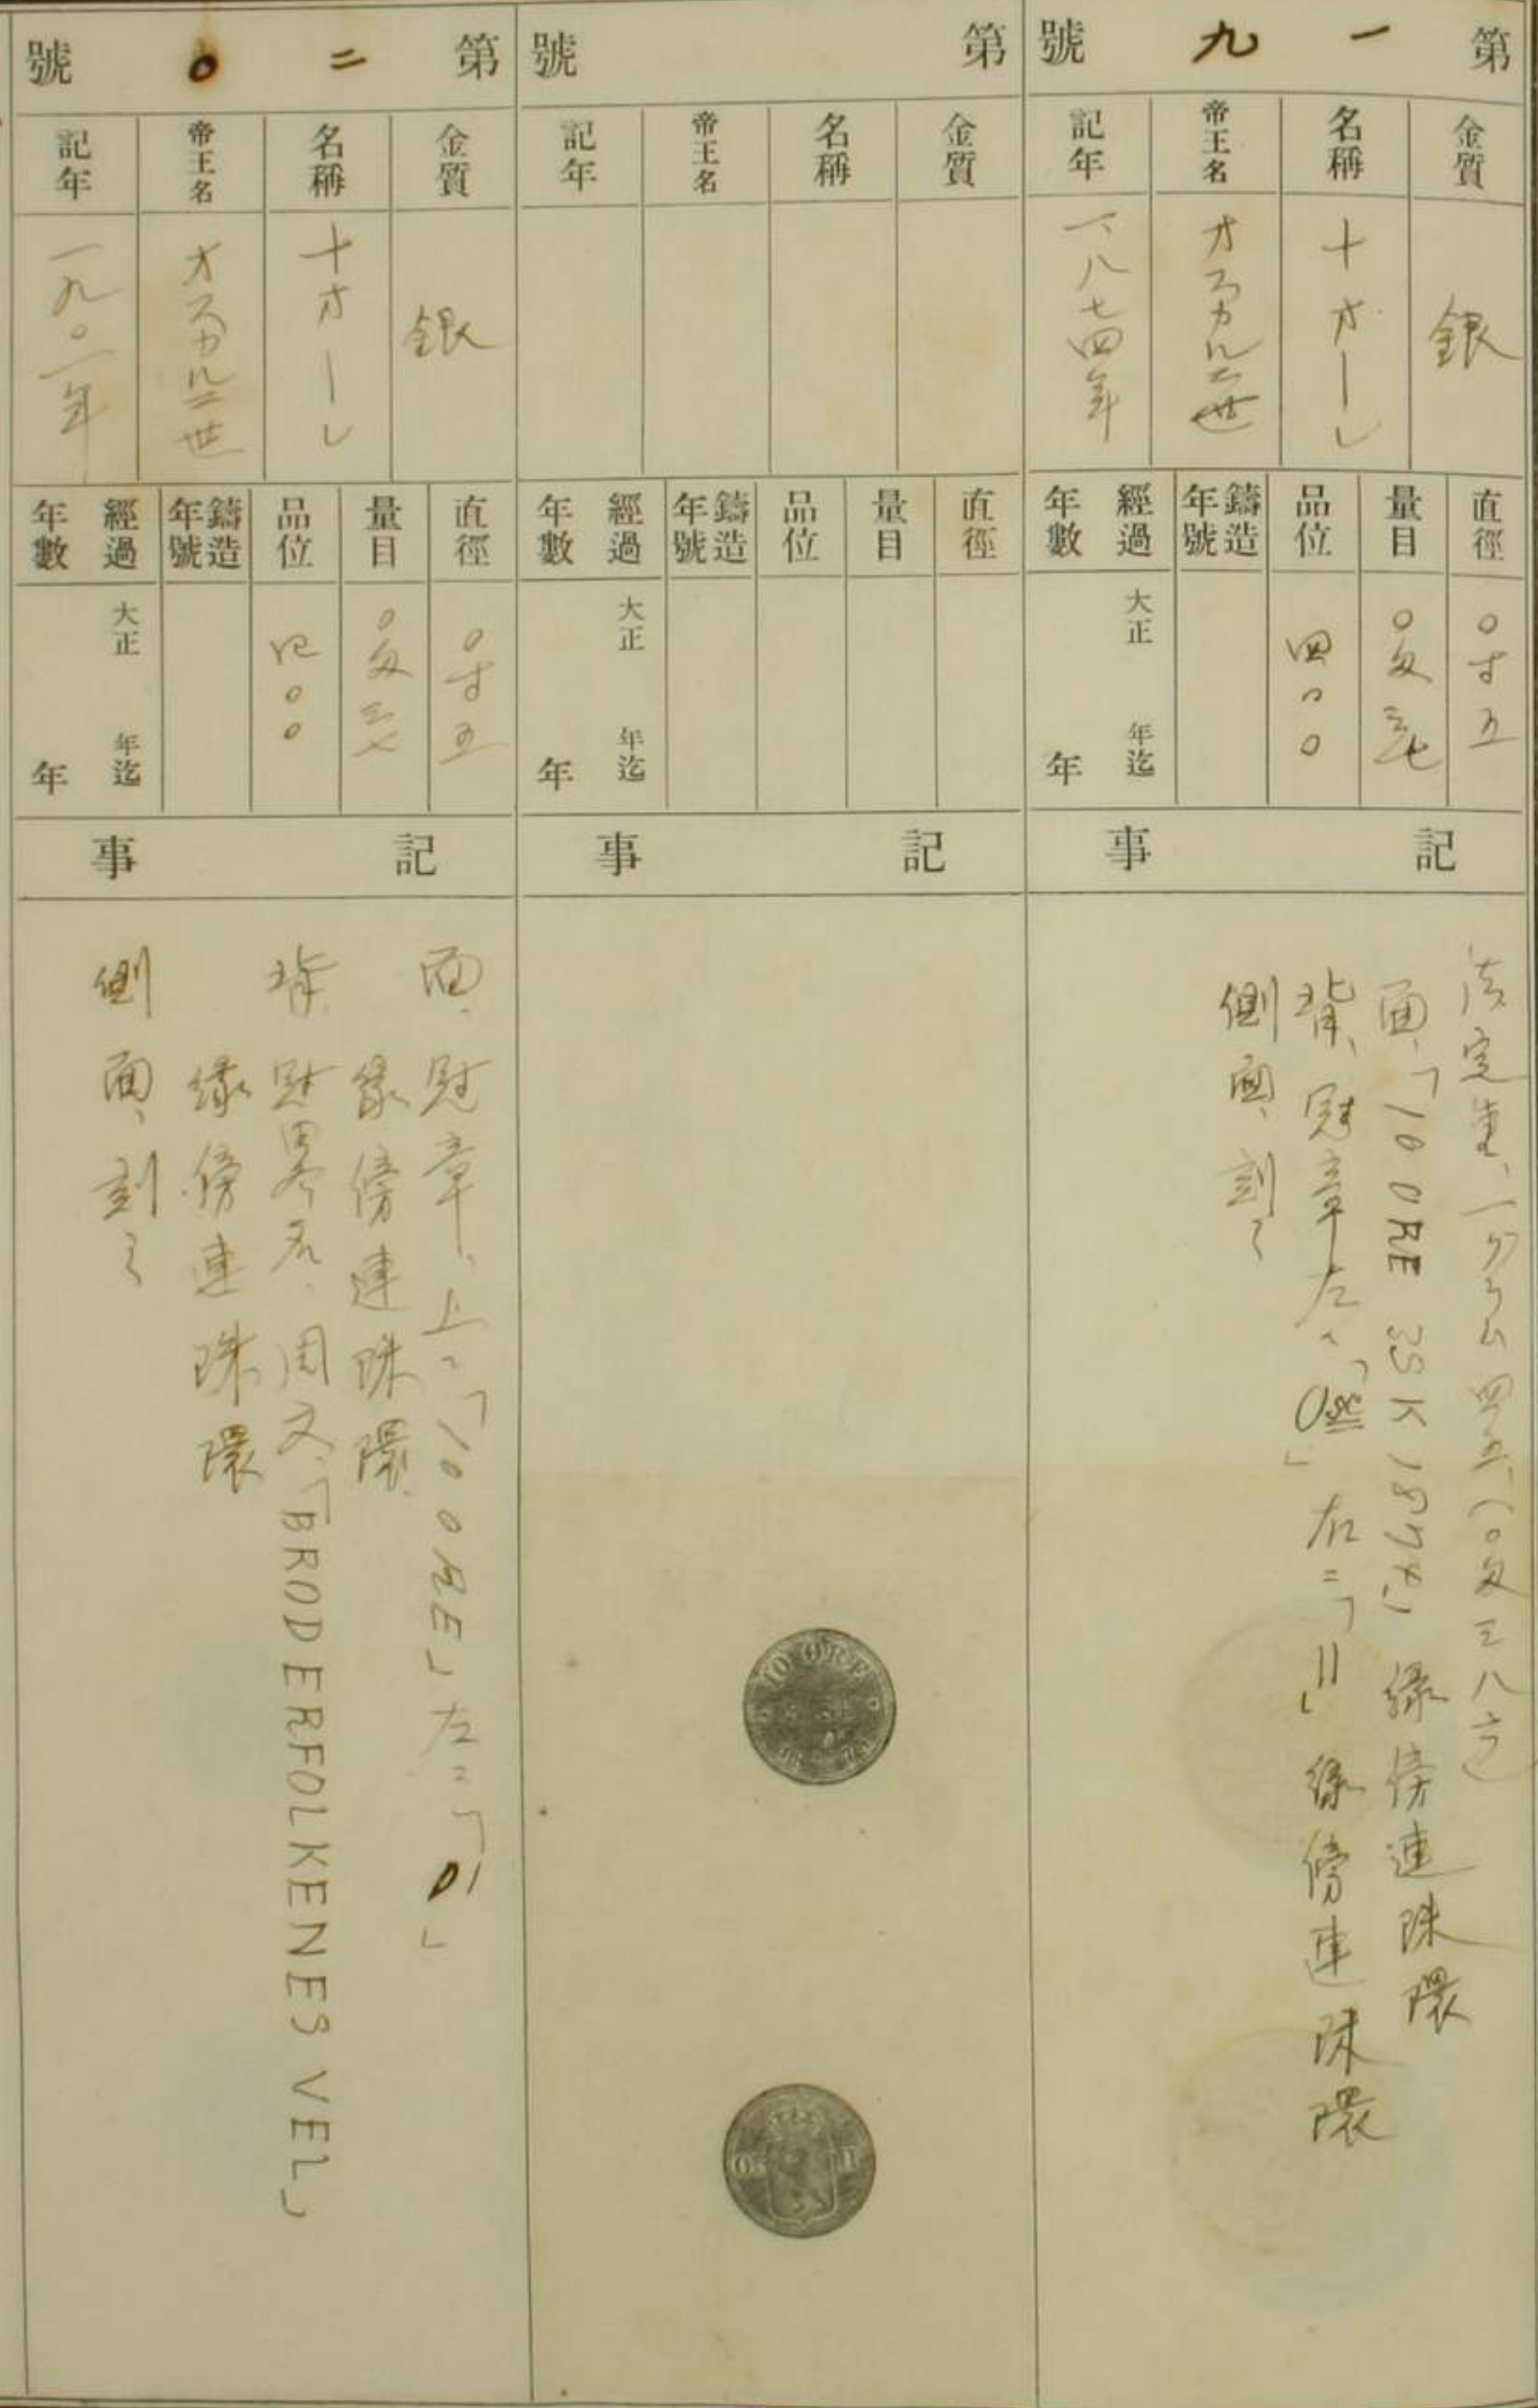 第一九號
金質
銀
名稱
十オーレ
帝王名
オスカル二世
記年
一、八七四年
直徑
〇寸五
量目
〇匁三七
品位
四〇〇
鑄造年號
經過年數
大正 年迄
年
記事
法定量、一グラム四五、(〇匁三八六)
面、「10 ORE 3SK 1874」 緣傍連珠環
背、冠章左ニ「Osc」右ニ「II」緣傍連珠環
側面、刻ミ
第 號
金質
名稱
帝王名
記年
直徑
量目
品位
鑄造年號
經過年數
大正 年迄
年
記事
10 ØRE
II
第二〇號
金質
銀
名稱
十オーレ
帝王名
オスカル二世
記年
一九〇一年
直徑
〇寸五
量目
〇匁三七
品位
四〇〇
鑄造年號
經過年數
大正 年迄
年
記事
面、冠章、上ニ「10 ORE」左ニ「01」
緣傍連珠環
背 周文、「BRODERFOLKENES VEL」
緣傍連珠環
側面、刻ミ